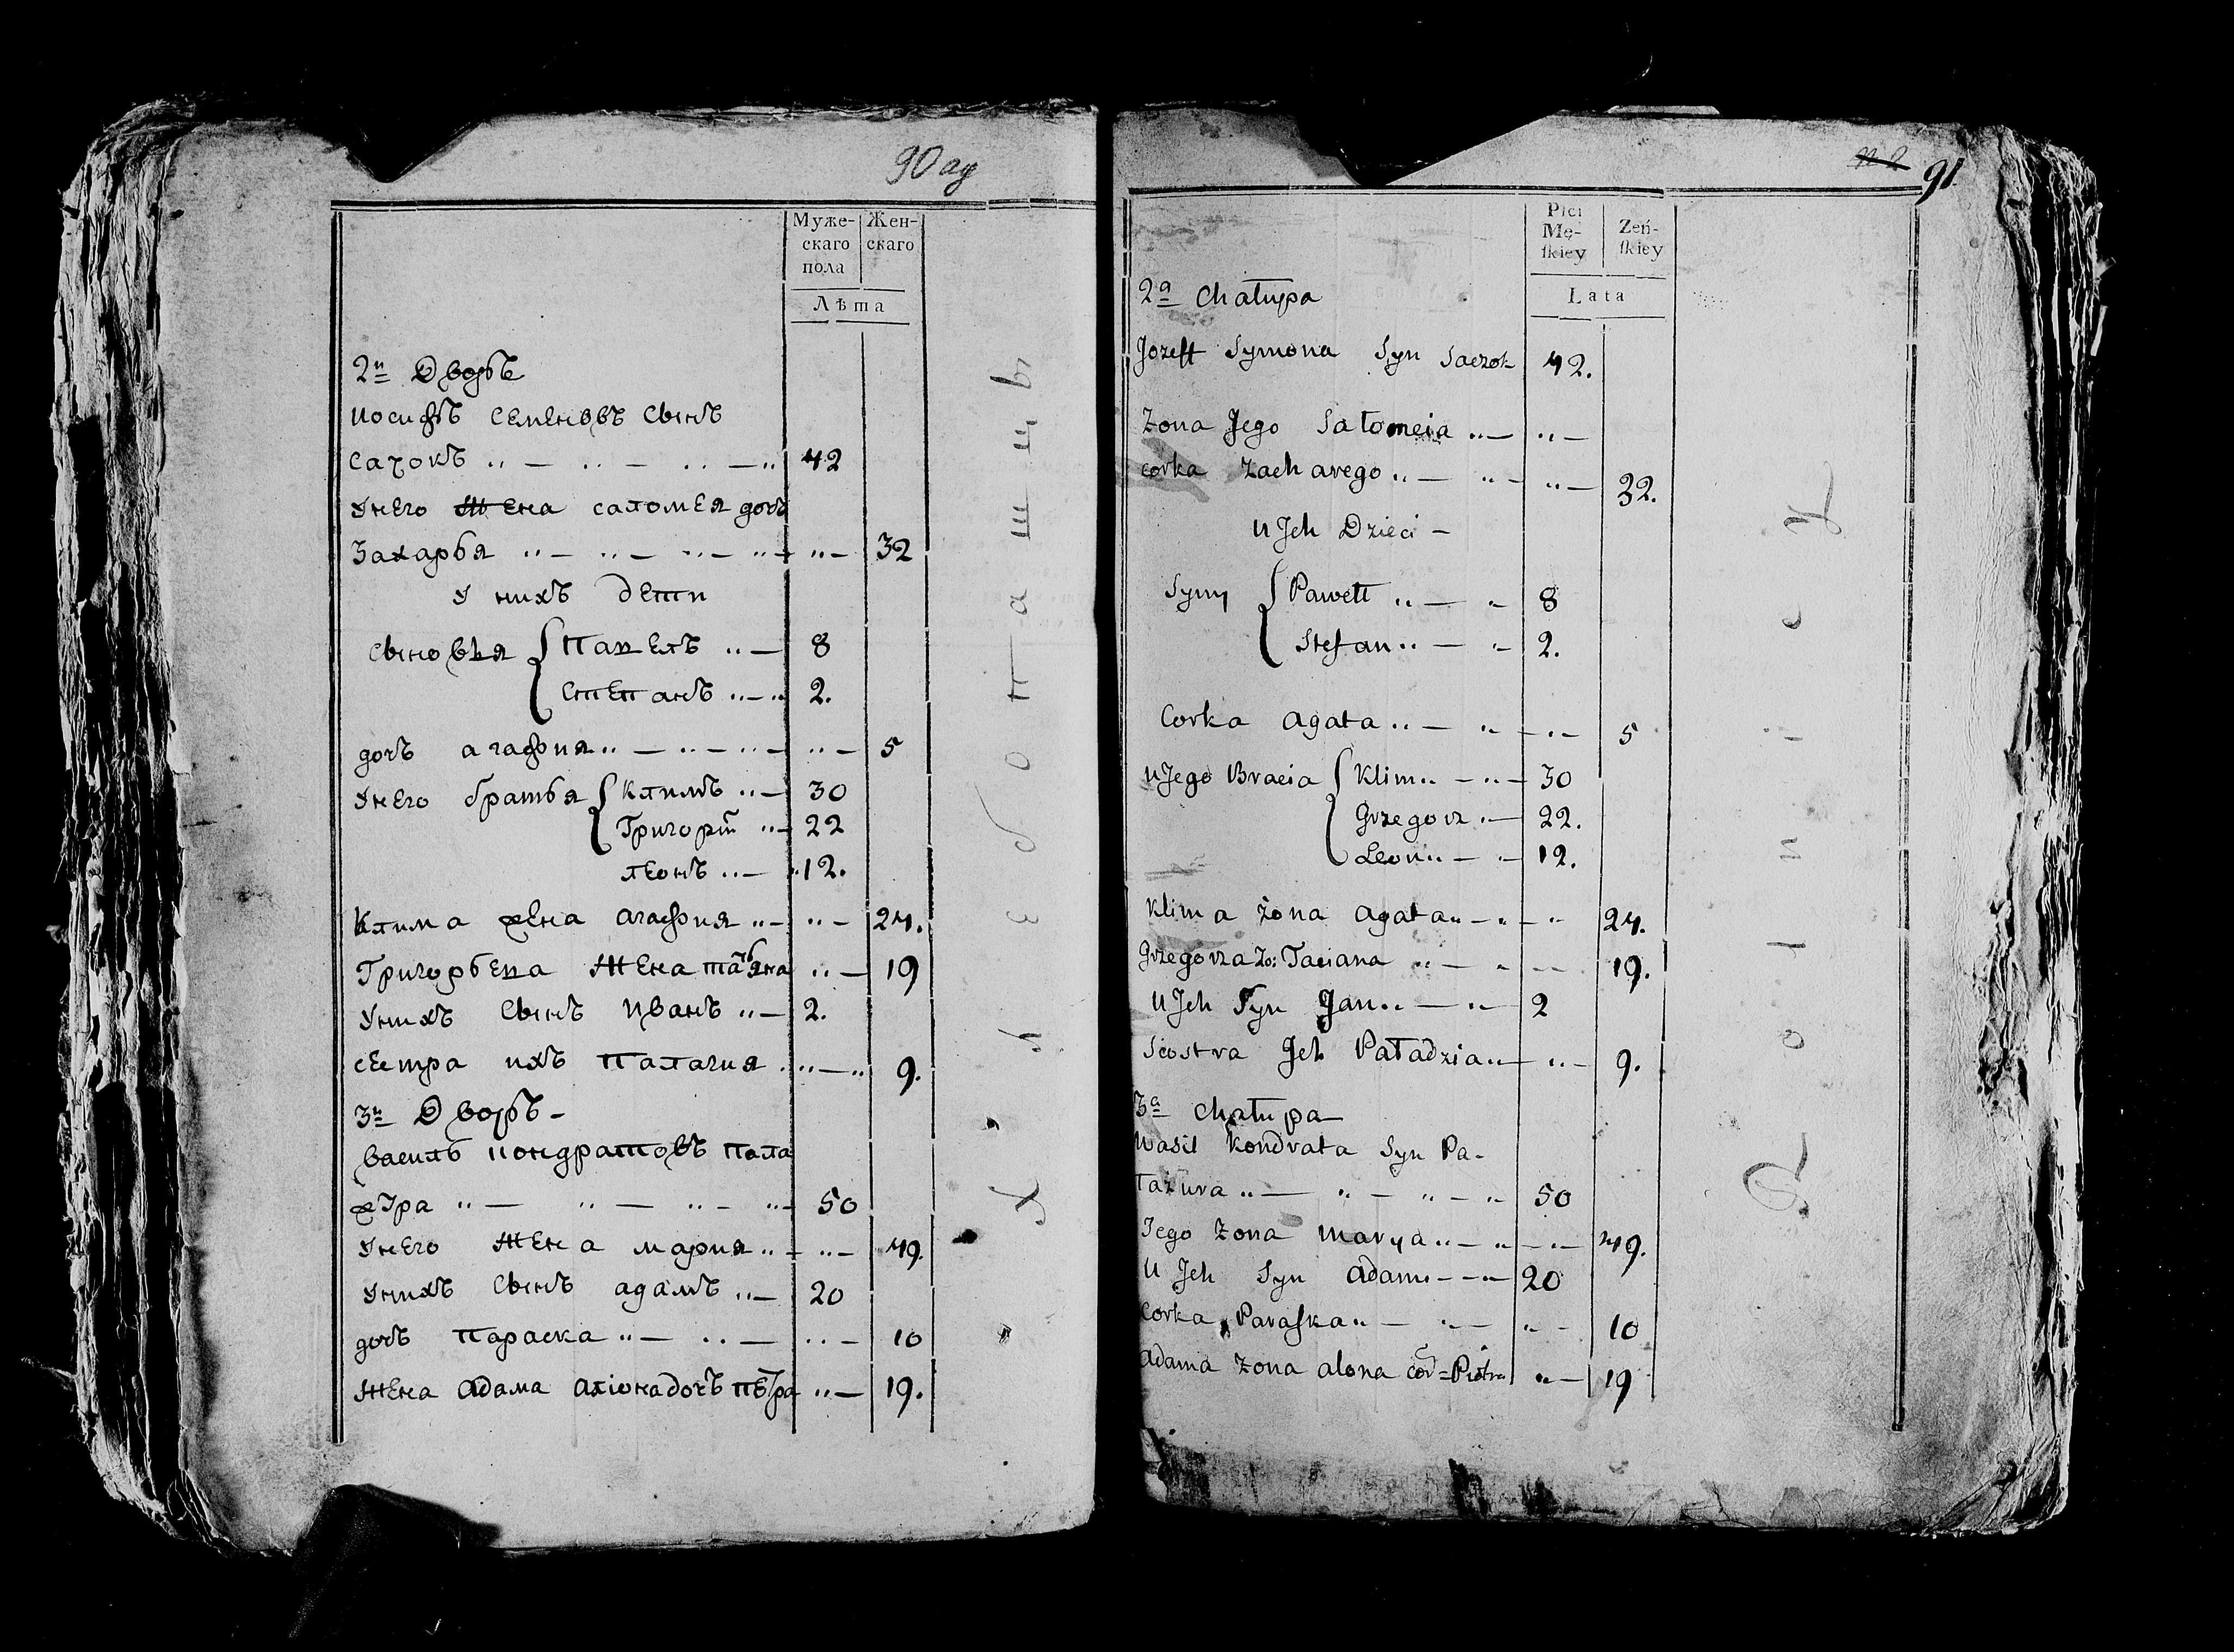 90 ад
Муже-
скаго
пола
Жен-
скаго
Лѣта
2й Дворъ
иосифъ семеновъ сынъ
сачокъ 42
унего жена саломея дочъ
Захарья 32
у нихъ дети
сыновья Павелъ 8
степанъ 2.
дочъ агафия 5
унего братья климъ 30
Григорий 22
леонъ 12.
клима жена агафия 24.
Григорьева жена татьяна 19
унихъ сынъ иванъ 2.
сестра ихъ палагия 9.
3й Дворъ
василь кондратовъ пала
жура 50
унего жена мария 49.
унихъ сынъ адамъ 20
дочъ параска 10
жена адама алiона дочъ пѣтра 19.
Хлебопашцы
91
Płci
Mę-
ſkiey
Żeń-
ſkiey
Lata
2a Chałupa
Jozeff Symona Syn Saczok 42.
Zona Jego Sałomeia
corka Zacharego 32.
U Jch Dzieci
Syny Pawełł 8
Stefan 2.
Corka Agata 5
U Jego Bracia Klim 30
Grzegorz 22.
Leon 12.
Klima żona Agata 24.
Grzegorza Zo: Taciana 19.
U Jch Syn Jan 2
Siostra Jch Paładzia 9.
3a Chałupa
Wasil Kondrata Syn Pa-
łazura 50
Jego Zona Marya 49.
U Jch Syn Adam 20
Corka Paraſka 10
Adama Zona alona cor= Piotra 19
Rolnicy